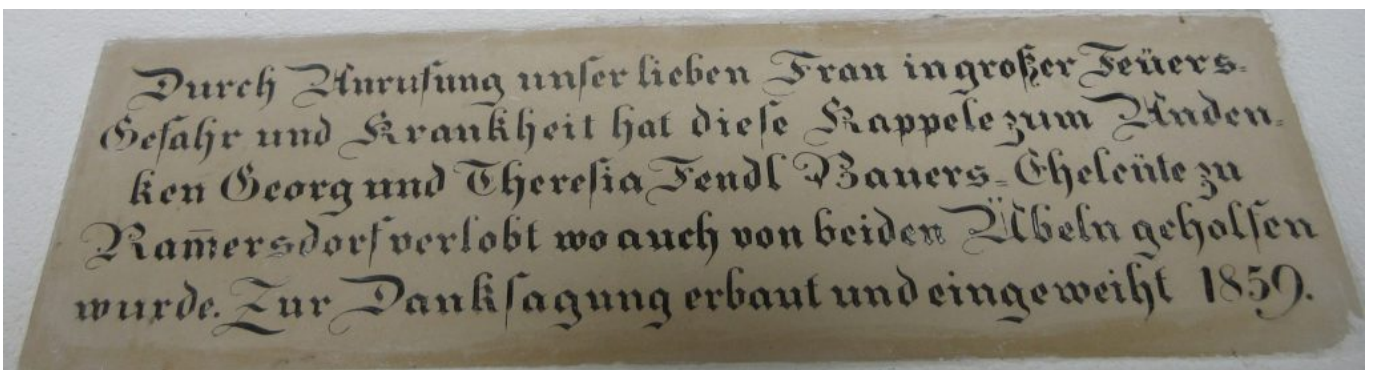 Durch Anrufung unser lieben Frau in großer Feüers-
Gefahr und Krankheit hat diese Kappele zum Anden-
ken Georg und Theresia Fendl Bauers-Eheleüte zu
Ram̅ersdorf verlobt wo auch von beiden Übeln geholfen
wurde. Zur Danksagung erbaut und eingeweiht 1859.